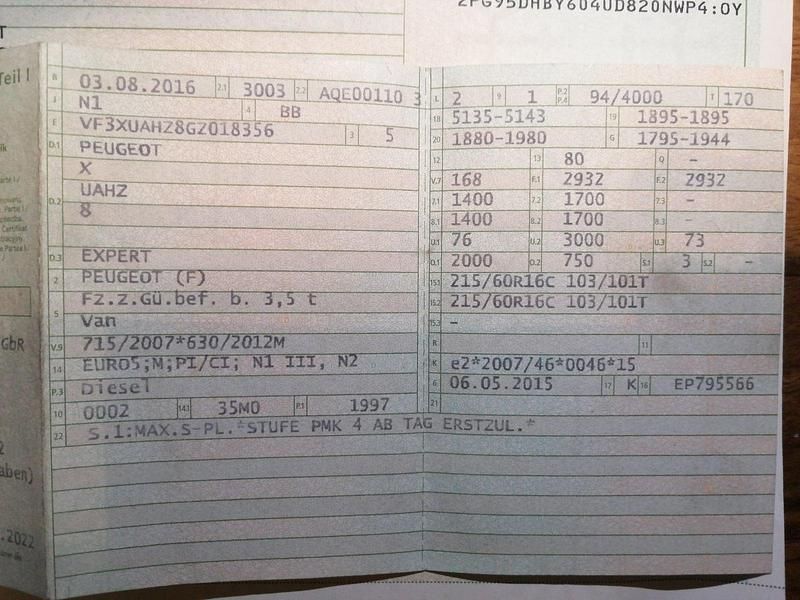 2FG95DHBY604UD820NWP4:OY
T
Teil I
B 03.08.2016 2.1 3003 2.2 AQE00110 3
J N1 4 BB
E VF3XUAHZ8GZ018356 3 5
D.1 PEUGEOT
X
UAHZ
D.2 8
D.3 EXPERT
2 PEUGEOT (F)
5 Fz.z.Gü.bef. b. 3,5 t
Van
V.9 715/2007*630/2012M
14 EURO5;M;PI/CI; N1 III, N2
P.3 Diesel
10 0002 14.1 35M0 P.1 1997
22 S.1:MAX.S-PL.*STUFE PMK 4 AB TAG ERSTZUL.*
L 2 9 1 P.2 P.4 94/4000 T 170
18 5135-5143 19 1895-1895
20 1880-1980 G 1795-1944
12 13 80 Q –
V.7 168 F.1 2932 F.2 2932
7.1 1400 7.2 1700 7.3 –
8.1 1400 8.2 1700 8.3 –
U.1 76 U.2 3000 U.3 73
O.1 2000 O.2 750 S.1 3 S.2 –
15.1 215/60R16C 103/101T
15.2 215/60R16C 103/101T
15.3 –
R 11
K e2*2007/46*0046*15
6 06.05.2015 17 K 16 EP795566
21
GbR
aben)
.2022